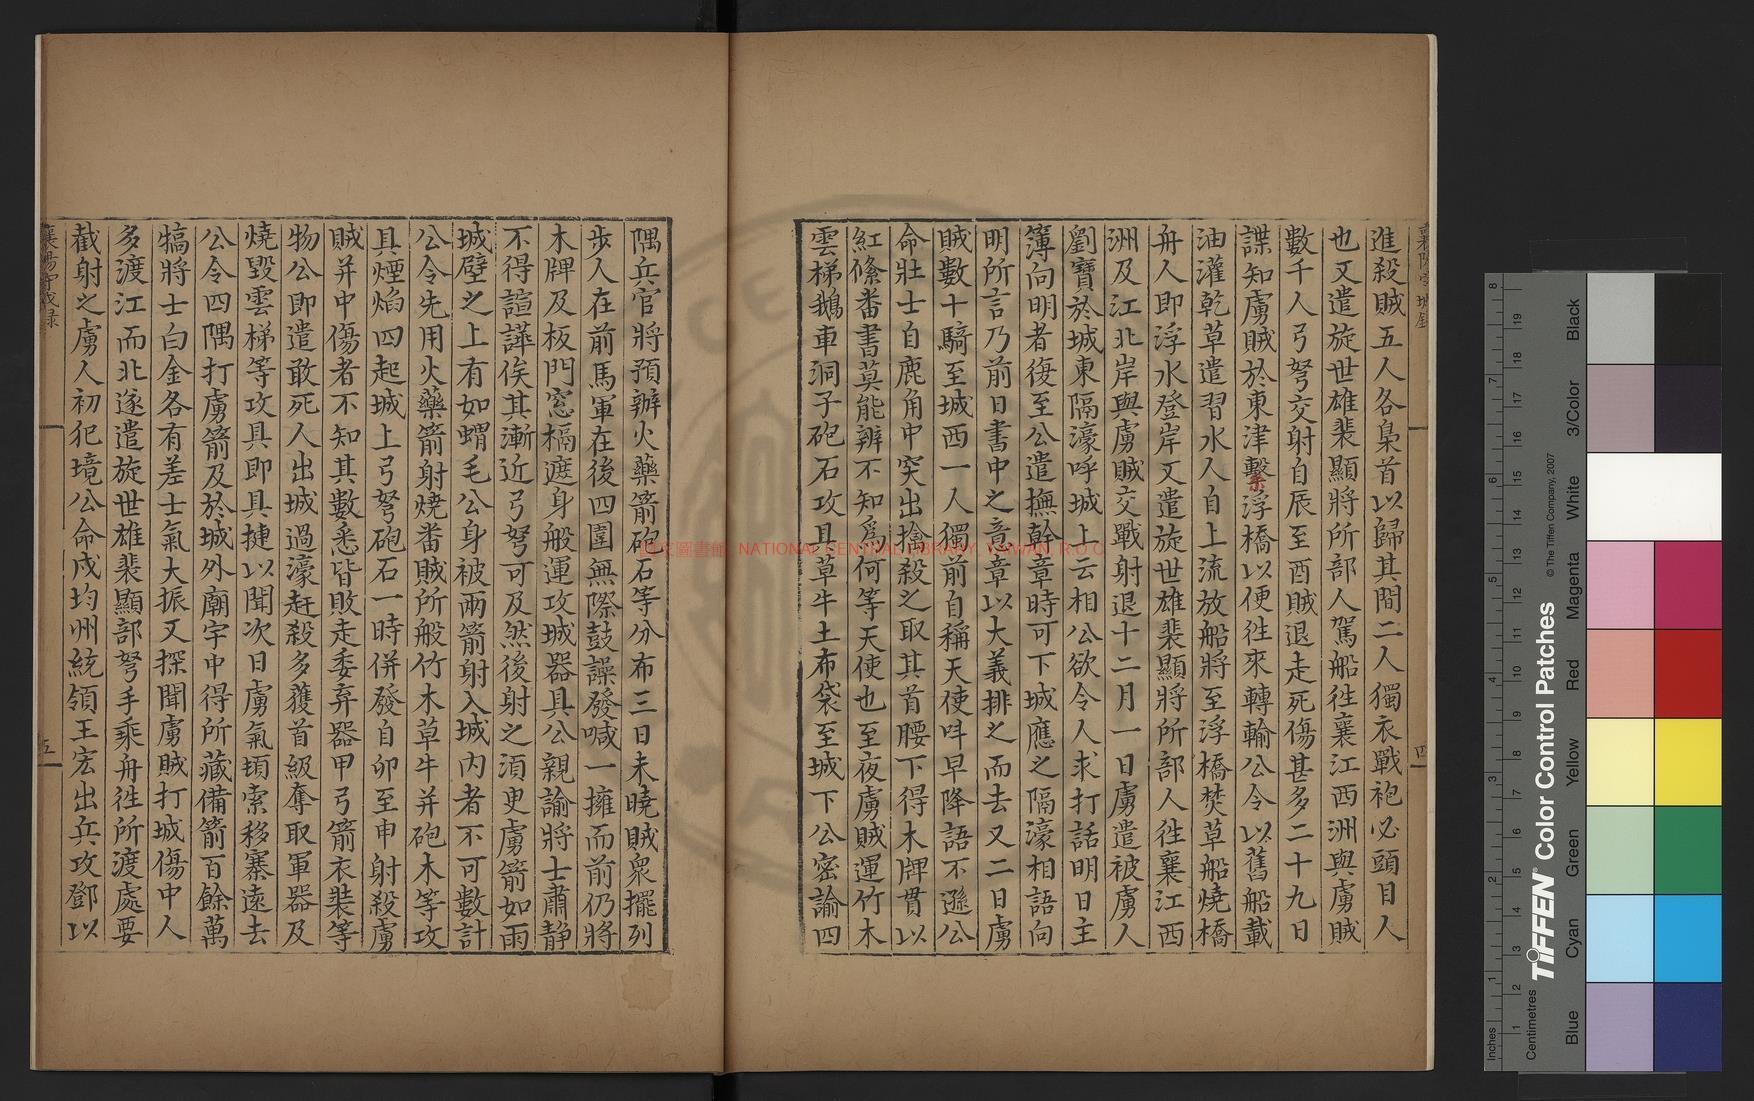 進殺賊五人各梟首以歸其間二人獨衣戰袍必頭目人
也又遣旋世雄裴顯將所部人駕船徃襄江西洲與虜賊
數千人弓弩交射自辰至酉賊退走死傷甚多二十九日
諜知虜賊於東津繫浮橋以便徃來轉輸公令以舊船載
油灌乾草遣習水人自上流放船將至浮橋焚草船燒橋
舟人即浮水登岸又遣旋世雄裴顯將所部人徃襄江西
洲及江北岸與虜賊交戰射退十二月一日虜遣被虜人
劉寶於城東隔濠呼城上云相公欲令人求打話明日主
簿向明者復至公遣撫幹章時可下城應之隔濠相語向
明所言乃前日書中之意章以大義排之而去又二日虜
賊數十騎至城西一人獨前自稱天使呌早降語不遜公
命壯士自鹿角中突出擒殺之取其首腰下得木牌貫以
紅絛番書莫能辨不知爲何等天使也至夜虜賊運竹木
雲梯鵝車洞子砲石攻具草牛土布袋至城下公密諭四
隅兵官將預辦火藥箭砲石等分布三日未曉賊衆擺列
步人在前馬軍在後四圍無際鼓譟發喊一擁而前仍將
木牌及板門窓槅遮身般運攻城器具公親諭將士肅静
不得諠譁俟其漸近弓弩可及然後射之湏㬰虜箭如雨
城壁之上有如蝟毛公身被兩箭射入城内者不可數計
公令先用火藥箭射燒番賊所般竹木草牛并砲木等攻
具煙焰四起城上弓弩砲石一時併發自卯至申射殺虜
賊并中傷者不知其數悉皆敗走委弃器甲弓箭衣裝等
物公即遣敢死人出城過濠赶殺多獲首級奪取軍器及
燒毀雲梯等攻具即具捷以聞次日虜氣頓索移寨遠去
公令四隅打虜箭及於城外廟宇中得所藏備箭百餘萬
犒將士白金各有差士氣大振又探聞虜賊打城傷中人
多渡江而北遂遣旋世雄裴顯部弩手乘舟徃所渡處要
截射之虜人初犯境公命戍均州統領王宏出兵攻鄧以